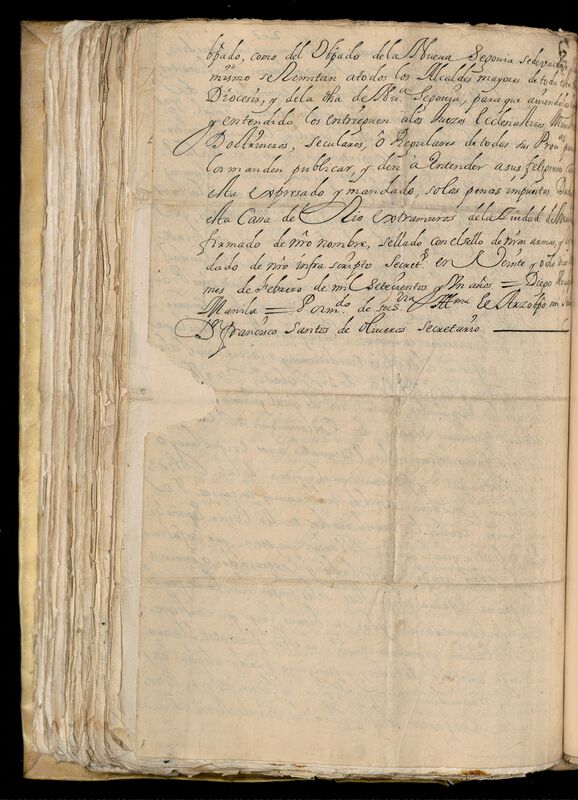 bpado, como del Obpado de la Nueva Segovia sedevac
mismo se Remitan atodos los Alcaldes mayores de toda esta
Diocesis, y dela dha de Nuª Segovia, para que
y entendido los entreguen alos Juezes Ecclesiasticos, 
Doctrineros, seculares, ô Regulares de todas sus Prov
los manden publicar, y den à entender a sus feligreses
ella expresado y mandado, so las penas impuestas.
esta Casa de Rio extramuros dela Ciudad de
firmado de nro nombre, sellado con el sello de nras armas, y
dado de nro infra scripto Secretº en Veinte y ocho
mes de Febrero de mil Setecientos y Un años = Diego
Manila = Por mdo. de Illma el Arzobpo mi
Dr Francisco Santos de Oliveros Secretario